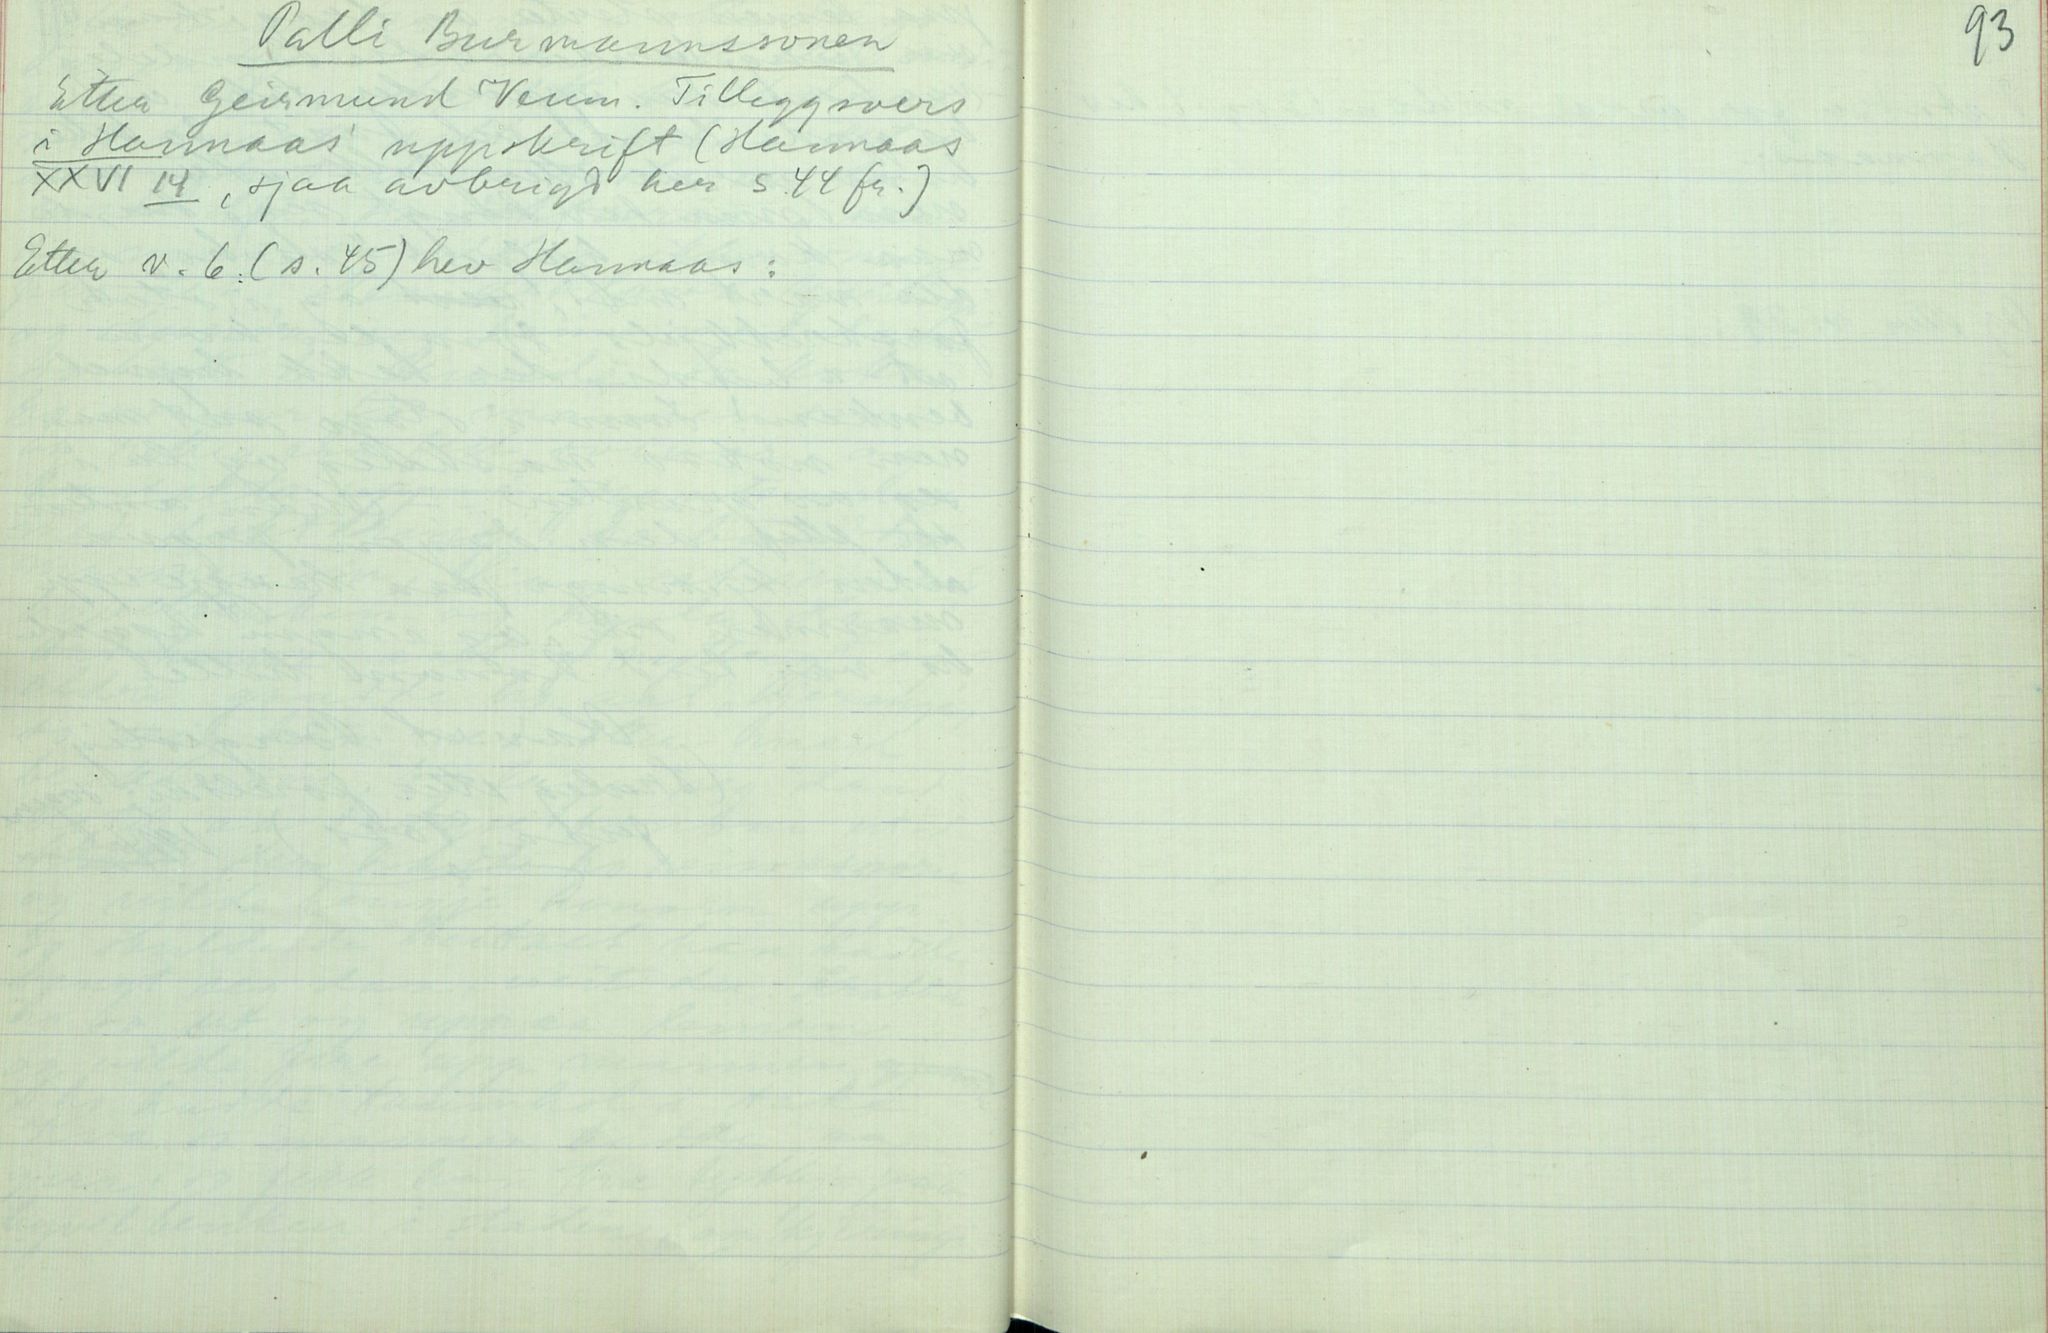 Palli Burmannssonen
Etter Geirmund Veum. Tilleggsvers
i Hannaas' uppskrift (Hannaas
XXVI 14, sjaa avbrigd her s. 44 fr.)
Etter v. 6. (s. 45) hev Hannaas:
93